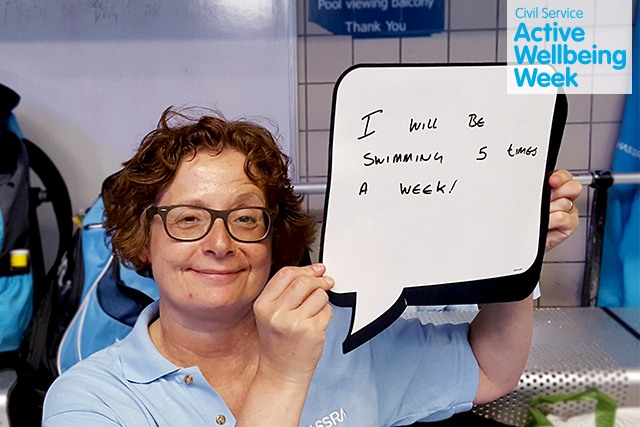 Pool viewing balcony
Thank You
Civil Service
Active
Wellbeing
Week
I WILL BE
SWIMMING 5 TIMES
A WEEK!